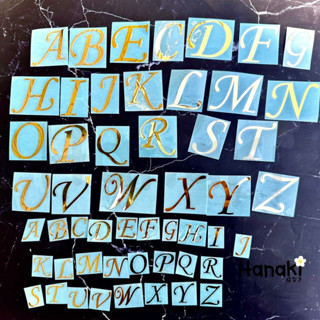 A B E C D F G
H I J K L M N
O P Q R S T
U V W X Y Z
A B C D E F G H I J
K L M N O P Q R
S T U V W X Y Z
Hanaki